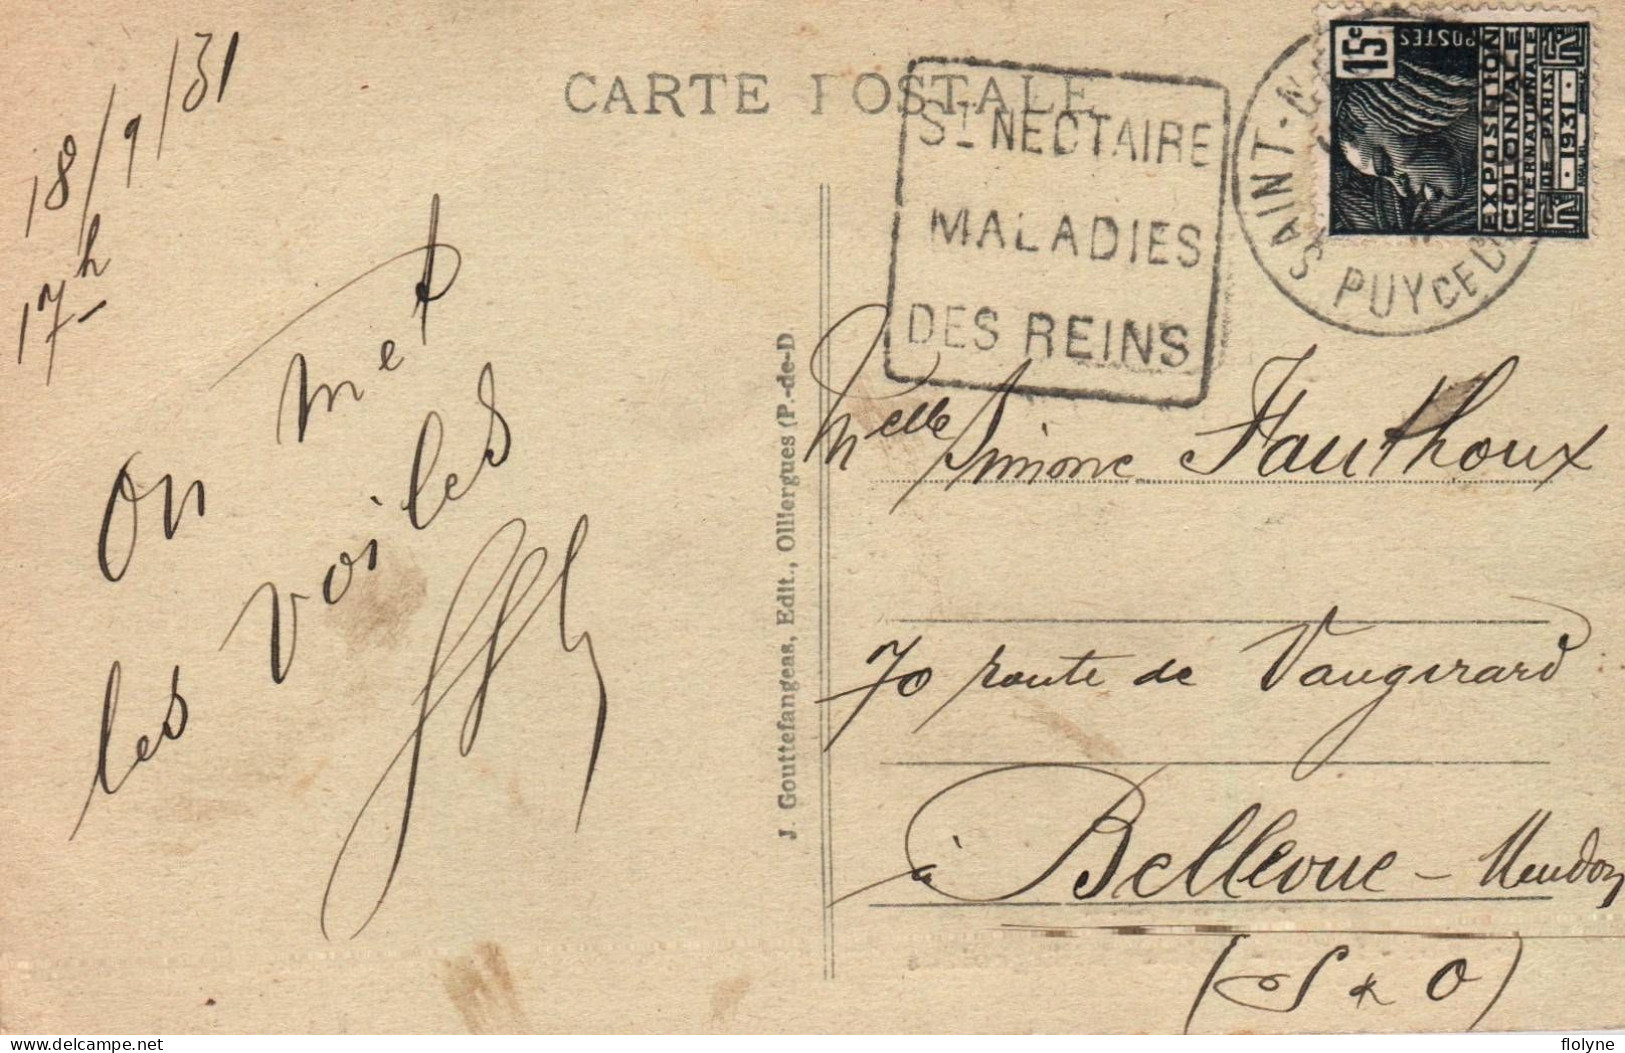 18/9/31
17h
On met
les voiles
CARTE POSTALE
J. Gouttefangeas, Edit., Olliergues (P.-de-D
ST NECTAIRE
MALADIES
DES REINS
SAINT-N
PUY CE D
15c
POSTES
EXPOSITION
COLONIALE
INTERNATIONALE
DE PARIS
1931
Melle Simone Fauthoux
70 route de Vaugirard
à Bellevue – Meudon
(S & O)
flolyne